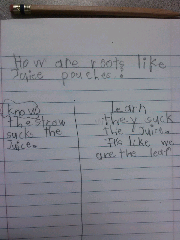 How are roots like
Juice pouches?
Know
the straw
sucks the
Juice.
learn
they suck
the Juice.
It's like we
are the leaf